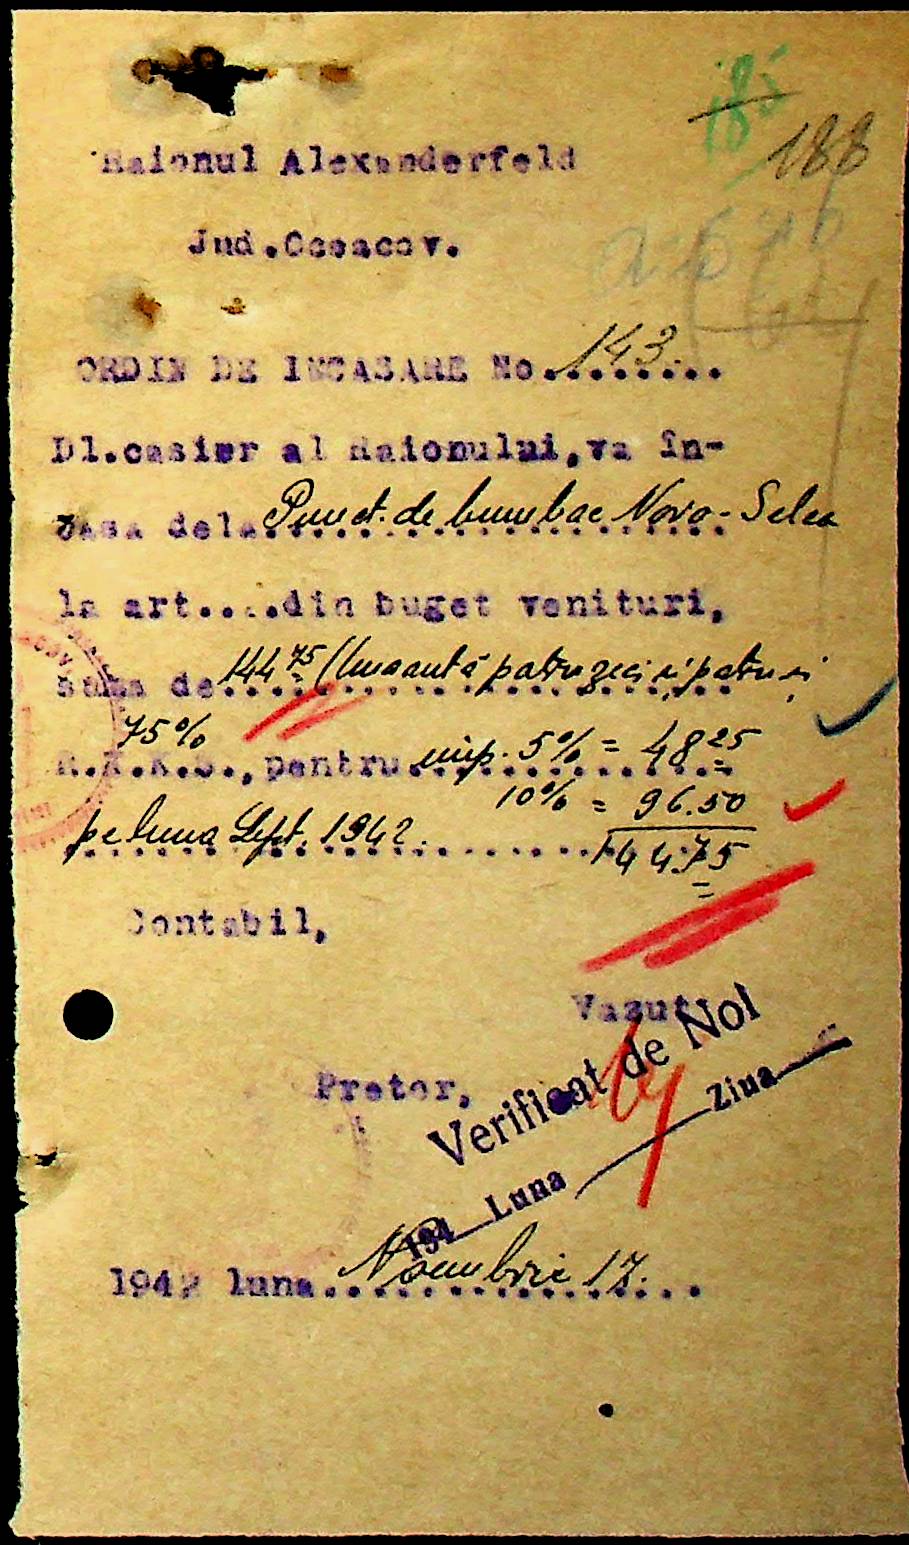 185
188
Raionul Alexanderfeld
Jud.Oceacov.
ORDIN DE INCASARE No.143.......
Dl.casier al Raionului,va în-
casa dela Punct. de bumbac Novo-Selca
la art....din buget venituri,
suma de 144 75 (Unasută patruzeci și patru și
75%
R.K.K.S.,pentru imp. 5% = 48 25
10% = 96.50
pe luna Sept. 1942. 144.75
Contabil,
Vazut
Verificat de Noi
Pretor,
194 Luna Ziua
1942 luna Noembrie 17.